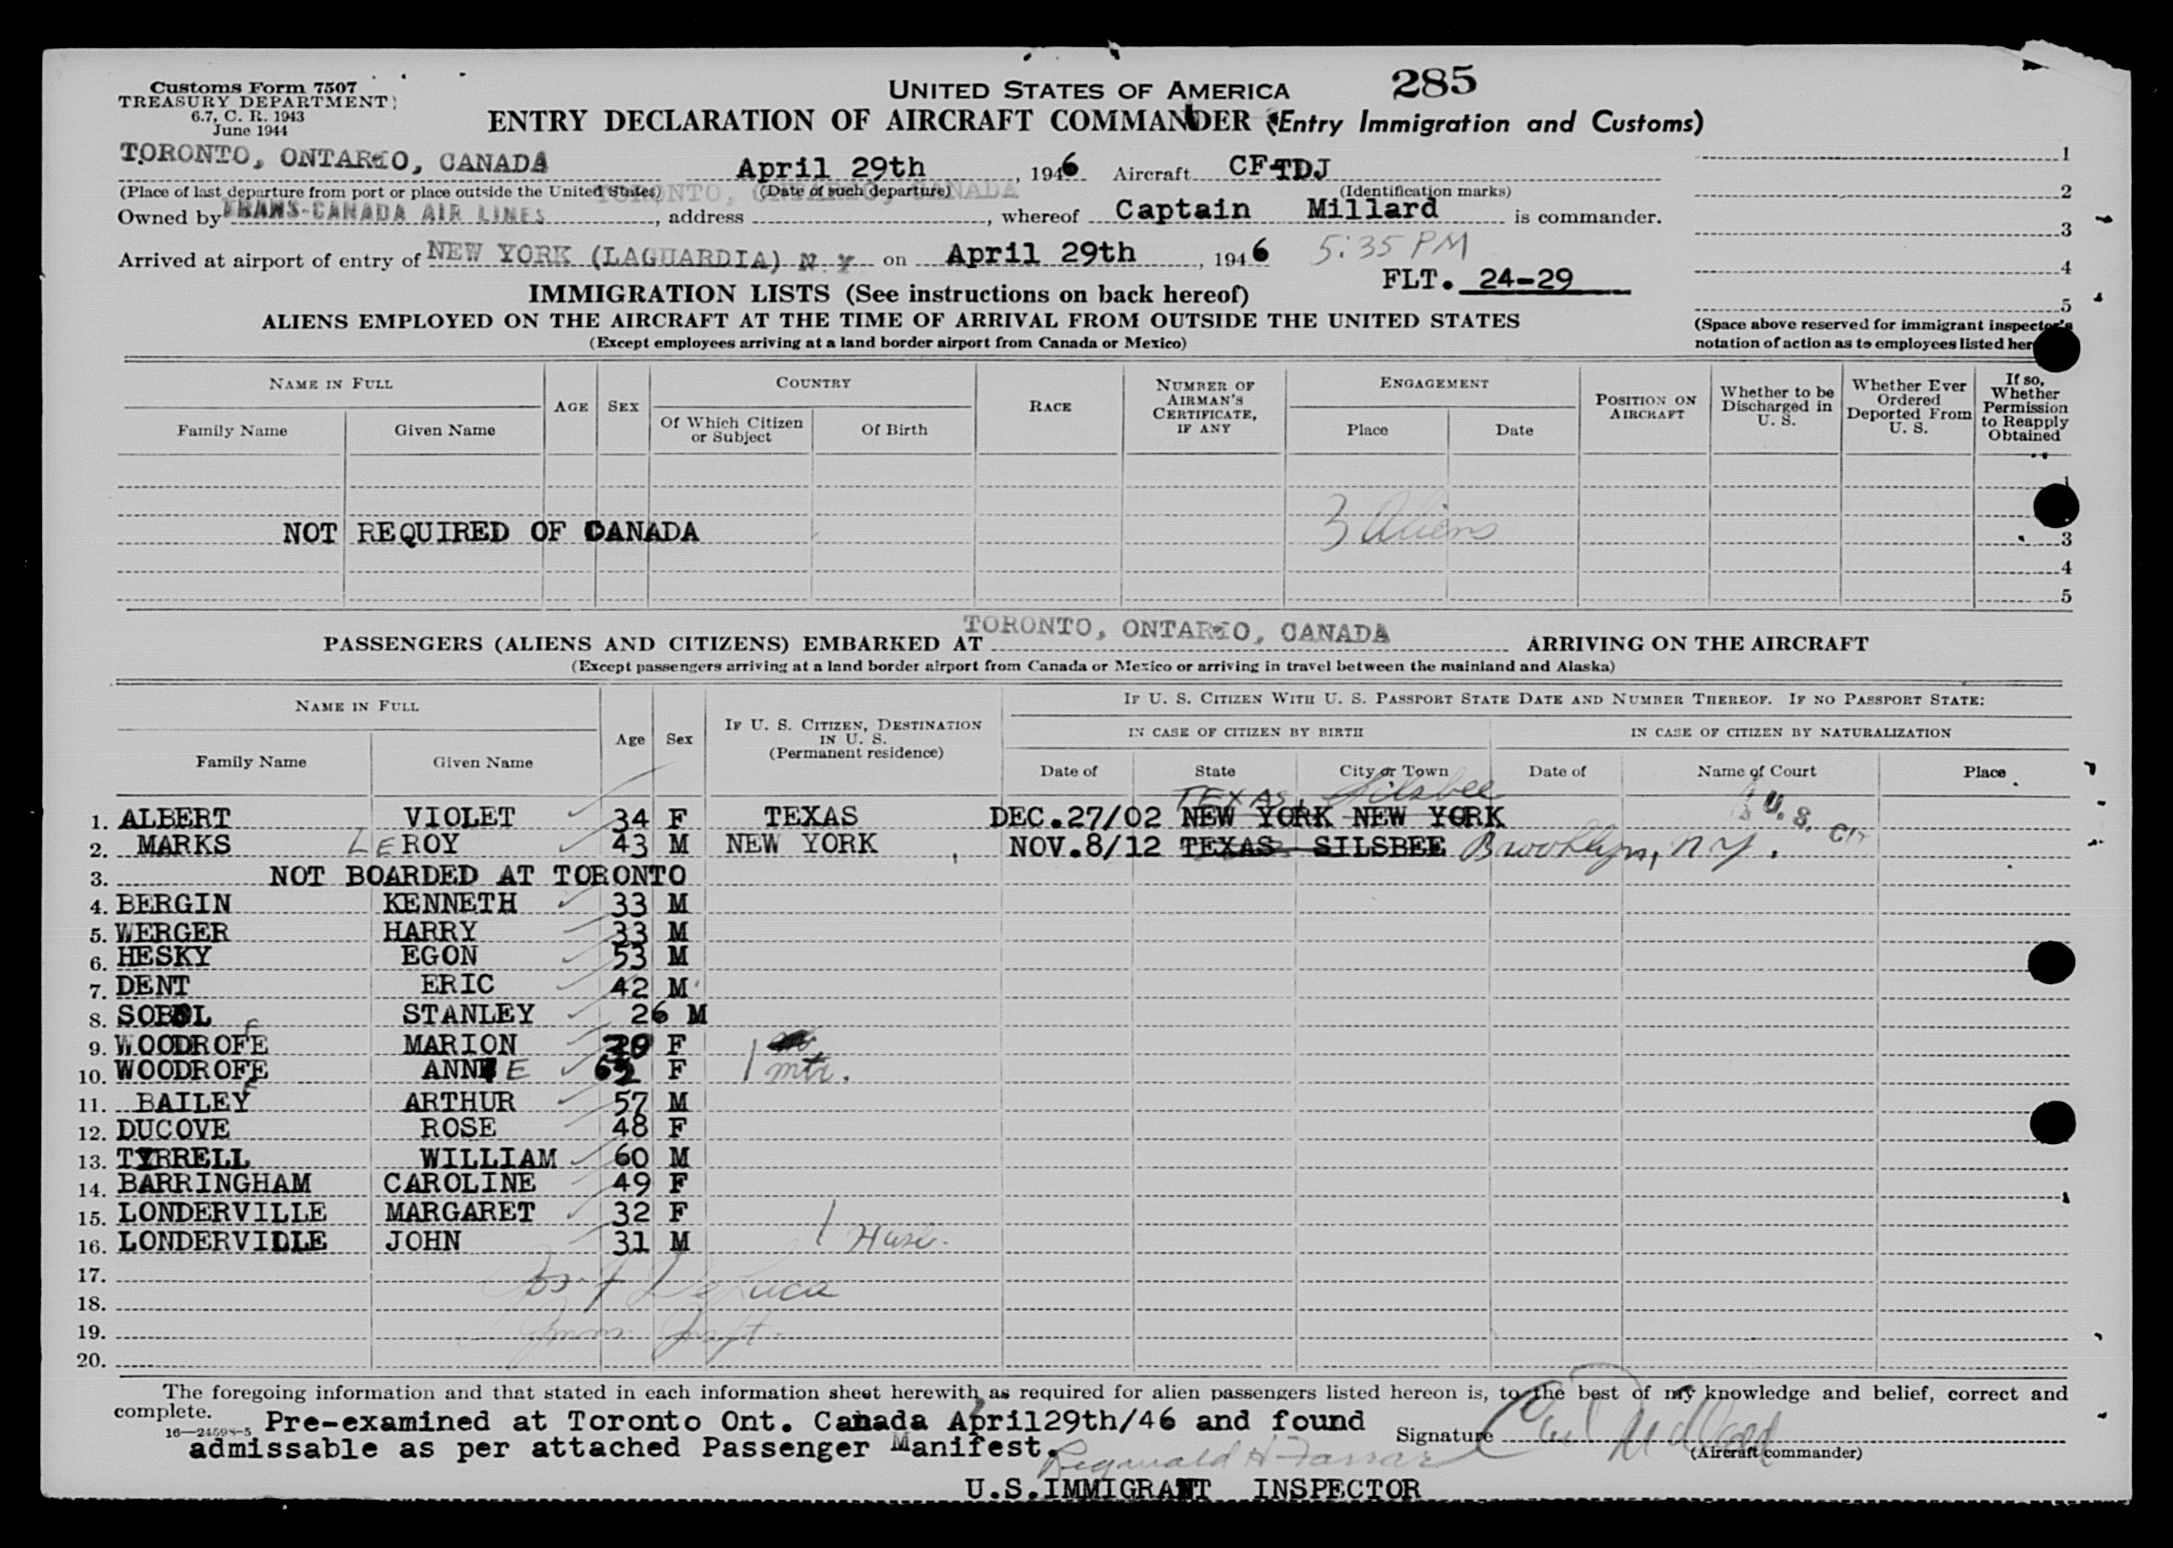 Customs Form 7507
TREASURY DEPARTMENT
6.7, C. R. 1943
June 1944
UNITED STATES OF AMERICA 285
ENTRY DECLARATION OF AIRCRAFT COMMANDER (Entry Immigration and Customs)
TORONTO, ONTARIO, CANADA April 29th, 1946 Aircraft CF-TDJ
(Place of last departure from port or place outside the United States) TORONTO, ONTARIO, CANADA (Date of such departure) (Identification marks)
Owned by TRANS-CANADA AIR LINES, address, whereof Captain Millard is commander.
Arrived at airport of entry of NEW YORK (LAGUARDIA) N Y on April 29th, 1946 5:35 PM
FLT. 24-29
1
2
3
4
5
(Space above reserved for immigrant inspector's
notation of action as to employees listed
IMMIGRATION LISTS (See instructions on back hereof)
ALIENS EMPLOYED ON THE AIRCRAFT AT THE TIME OF ARRIVAL FROM OUTSIDE THE UNITED STATES
(Except employees arriving at a land border airport from Canada or Mexico)
NAME IN FULL
Family Name Given Name
AGE SEX
COUNTRY
Of Which Citizen or Subject Of Birth
RACE
NUMBER OF AIRMAN'S CERTIFICATE, IF ANY
ENGAGEMENT
Place Date
POSITION ON AIRCRAFT
Whether to be Discharged in U. S.
Whether Ever Ordered Deported From U. S.
If so, Whether Permission to Reapply Obtained
1
NOT REQUIRED OF CANADA 3 Aliens 3
4
5
PASSENGERS (ALIENS AND CITIZENS) EMBARKED AT TORONTO, ONTARIO, CANADA ARRIVING ON THE AIRCRAFT
(Except passengers arriving at a land border airport from Canada or Mexico or arriving in travel between the mainland and Alaska)
NAME IN FULL
Family Name Given Name
Age Sex
IF U. S. CITIZEN, DESTINATION IN U. S. (Permanent residence)
IF U. S. CITIZEN WITH U. S. PASSPORT STATE DATE AND NUMBER THEREOF. IF NO PASSPORT STATE:
IN CASE OF CITIZEN BY BIRTH IN CASE OF CITIZEN BY NATURALIZATION
Date of State City or Town Date of Name of Court Place
TEXAS, Silsbee
1. ALBERT VIOLET 34 F TEXAS DEC.27/02 NEW YORK NEW YORK U.S. CIT
2. MARKS LEROY 43 M NEW YORK NOV.8/12 TEXAS SILSBEE Brooklyn, N.Y.
3. NOT BOARDED AT TORONTO
4. BERGIN KENNETH 33 M
5. WERGER HARRY 33 M
6. HESKY EGON 53 M
7. DENT ERIC 42 M
8. SOBOL STANLEY 26 M
9. WOODROFFE MARION F
10. WOODROFFE ANNE 62 F 1 mtr.
11. BAILEY ARTHUR 57 M
12. DUCOVE ROSE 48 F
13. TYRRELL WILLIAM 60 M
14. BARRINGHAM CAROLINE 49 F
15. LONDERVILLE MARGARET 32 F
16. LONDERVILLE JOHN 31 M 1 Husb.
17. Jos. F DeLuca
18.
19. Imm. Insp't.
20.
The foregoing information and that stated in each information sheet herewith as required for alien passengers listed hereon is, to the best of my knowledge and belief, correct and
complete.
16—24598-5
Pre-examined at Toronto Ont. Canada April29th/46 and found
admissable as per attached Passenger Manifest.
Signature
(Aircraft commander)
Reginald H Farrar
U.S.IMMIGRANT INSPECTOR